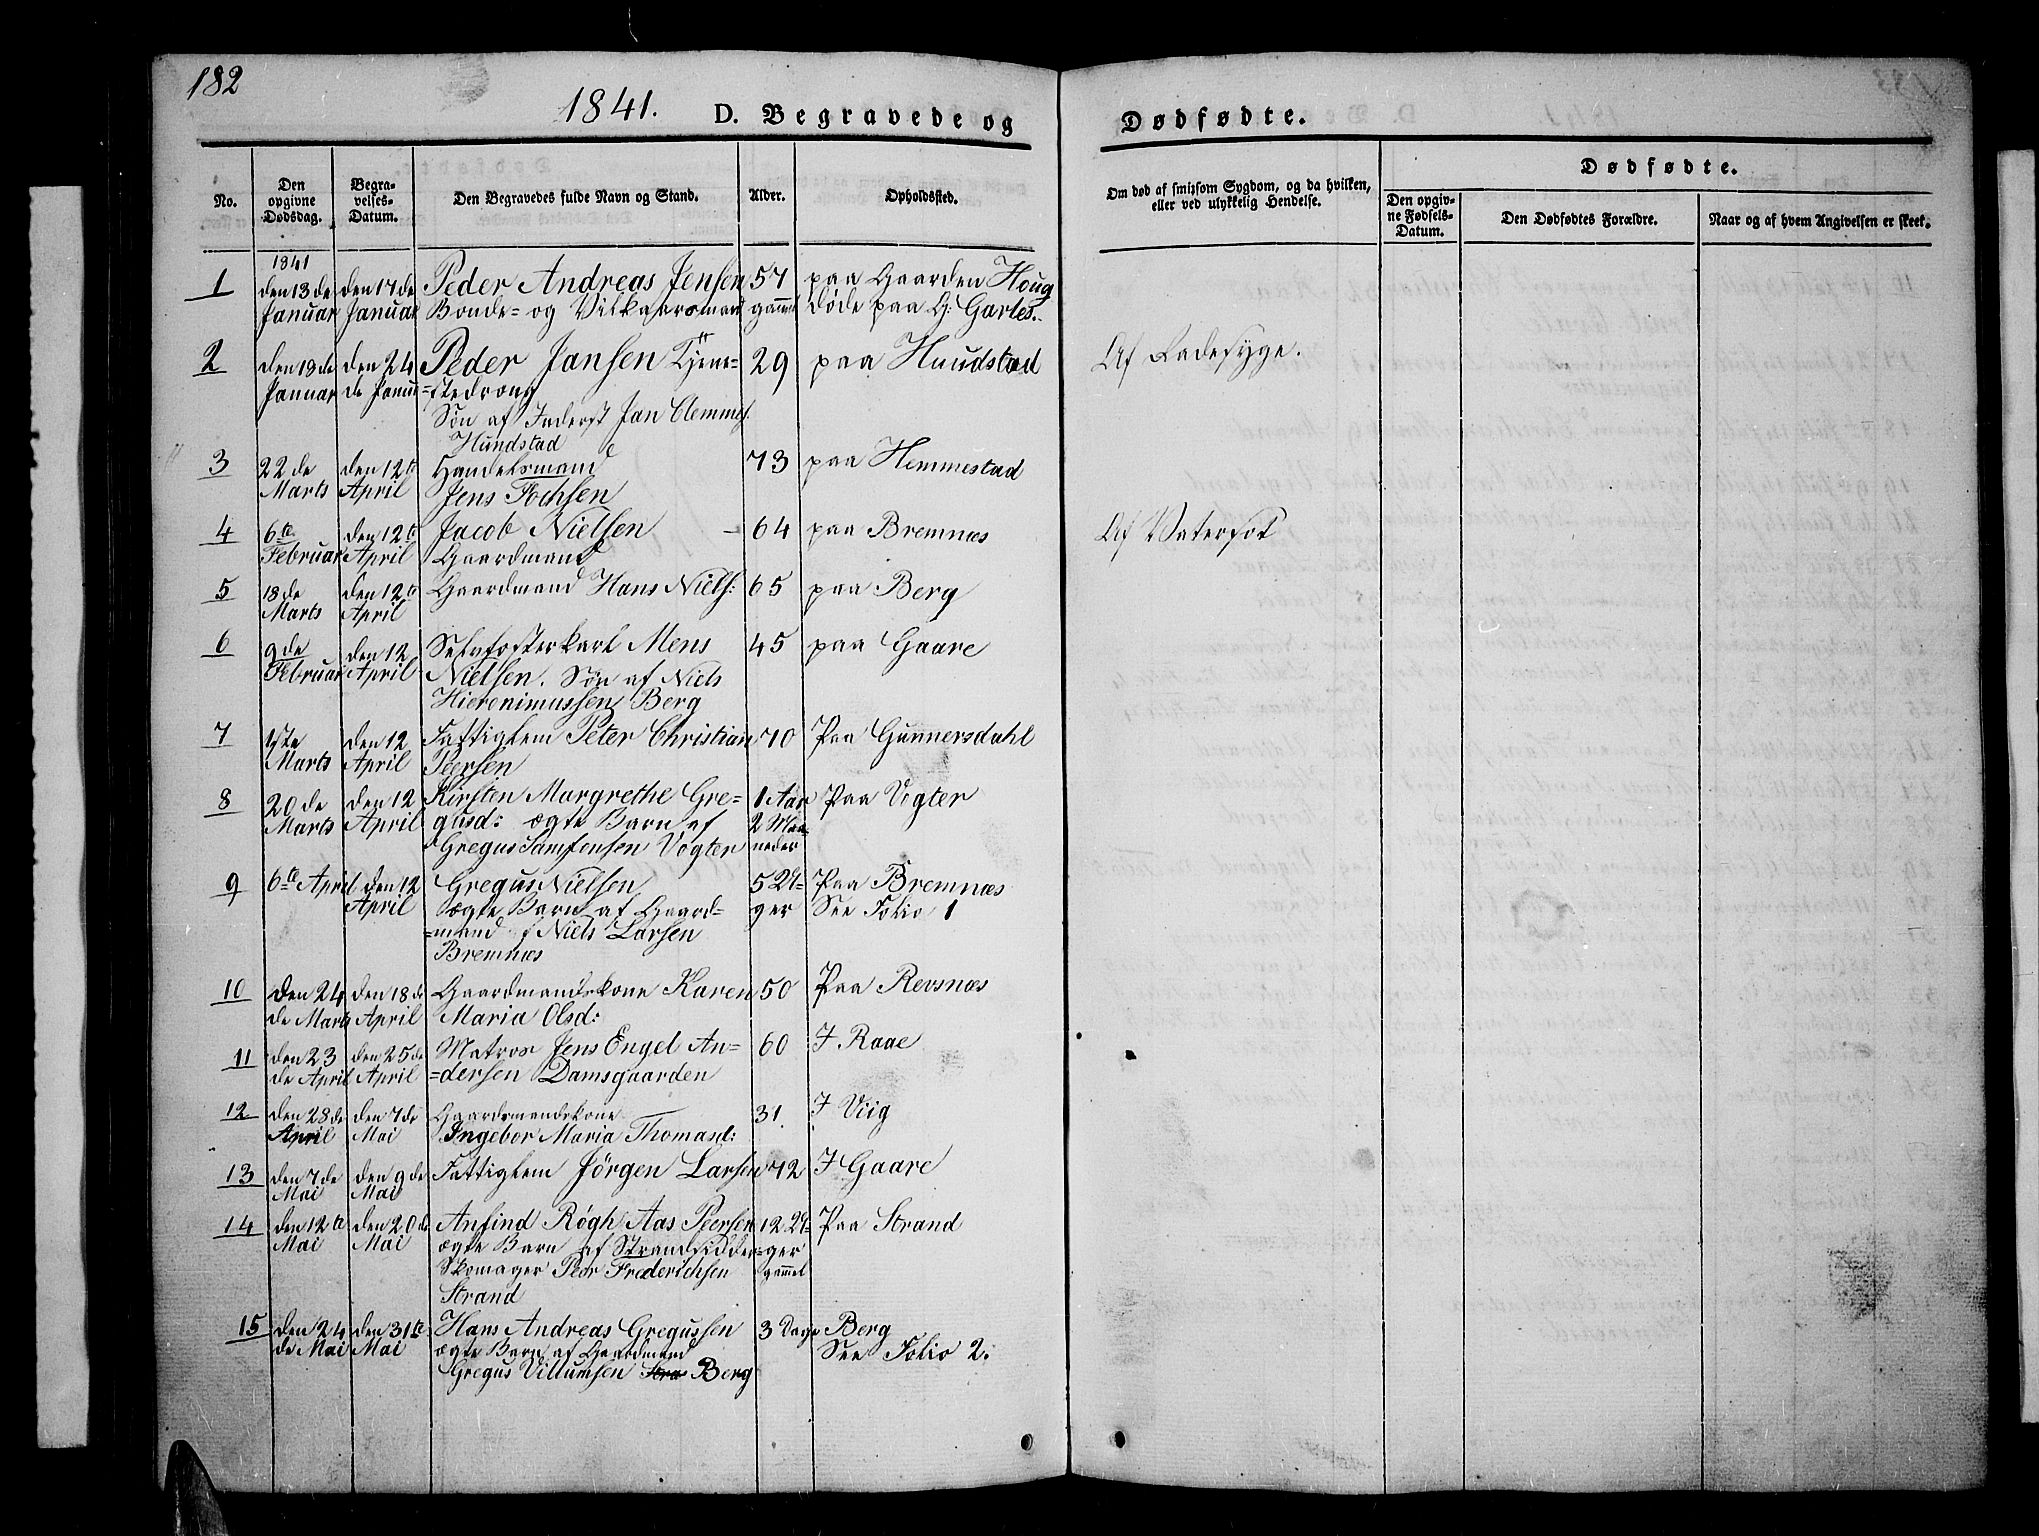 182
1841. D. Begravede og Dødfødte.
No.
Den opgivne Dødsdag.
Begravelses-Datum.
Den Begravedes fulde Navn og Stand.
Alder.
Opholdssted.
Om død af smitsom Sygdom, og da hvilken,
eller ved ulykkelig Hendelse.
Dødfødte.
Den opgivne Fødsels-Datum.
Den Dødfødtes Forældre.
Naar og af hvem Angivelsen er skeet.
1841
1 den 13de den 17de Peder Andreas Jensen 57 paa Gaarden Houg
Januar Januar Bonde- og Vilkaarsmand gammel døde paa G: Gartes.
2 den 19de den 24 Peder Jansen Tjene= 29 paa Huudstad Af Radesyge.
Januar de Januar =stedreng
Søn af Inderst Jan Clemmes.
Hundstad
3 22de den 12te Handelsmand 73 paa Hemmestad
Marts April Jens Fochsen
4 6te den 12te Jacob Nielsen - 64 paa Bremnæs Af Vatersot
Februar April Gaardmand
5 18de den 12te Gaardmand Hans Niels: 65 paa Berg
Marts April
6 9de den 12 Selvfosterkarl Mens 45 paa Gaare
Februar April Nielsen. Søn af Niels
Hieronimussen Berg
7 1ste den 12 Fattiglem Peter Christian 70 Paa Gunnersdahl
Marts April Peersen
8 20de den 12 Kirsten Margrethe Gre= 1 Aar Paa Vogter
Marts April gusd: ægte Barn af 2 Maa-
Gregus Samsonsen Vogter neder
9 6te April den 12 Gregus Nielsen 5 Uger Paa Bremnæs
April ægte Barn af Gaard= See Folio 1
=mand Niels Larsen
Bremnæs
10 Den 24 den 18de Gaardmandskone Karen 50 Paa Revsnæs
de Marts April Maria Olsd:
11 den 23 den 25de Matros Jens Engel An= 60 I Raae
de April April =dersen Damsgaarden
12 den 28de den 7de Gaardsmandskone 31. I Viig
April Mai Ingebor Maria Thomasd:
13 den 7de den 9de Fattiglem Jörgen Larsen 72 I Gaare
Mai Mai
14 den 12te den 20de Anfind Røgh Aas Peersen 12 U= Paa Strand
Mai Mai ægte Barn af Strandsidder =ger
Skomager Peer Frederichsen gammel
Strand
15 den 24 den 31te Hans Andreas Gregussen 3 Dage Berg
de Mai Mai ægte Barn af Gaardmand See Folio 2.
Gregus Villumsen Berg